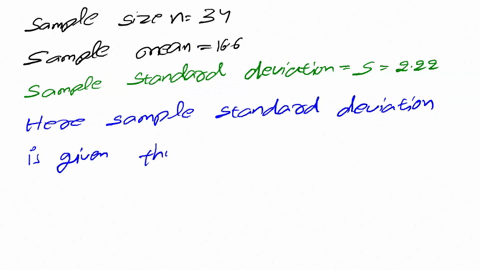 Sample size n= 34
Sample mean = 16.6
Sample standard deviation = S = 2.22
Here sample standard deviation
is given th